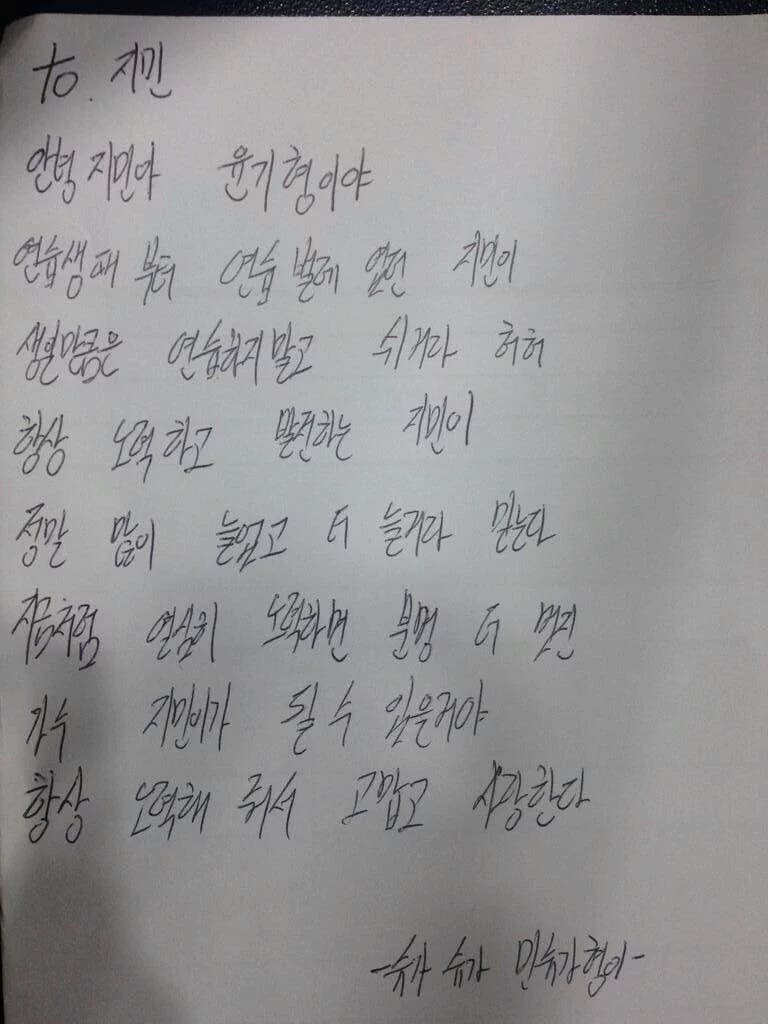 to. 지민
안녕 지민아 윤기형이야
연습생때 부터 연습 벌레 였던 지민이
생일만큼은 연습하지말고 쉬거라 허허
항상 노력하고 발전하는 지민이
정말 많이 늘었고 더 늘거라 믿는다
지금처럼 열심히 노력하면 분명 더 멋진
가수 지민이가 될 수 있을거야
항상 노력해 줘서 고맙고 사랑한다
-슈가 슈가 민슈가 형아-